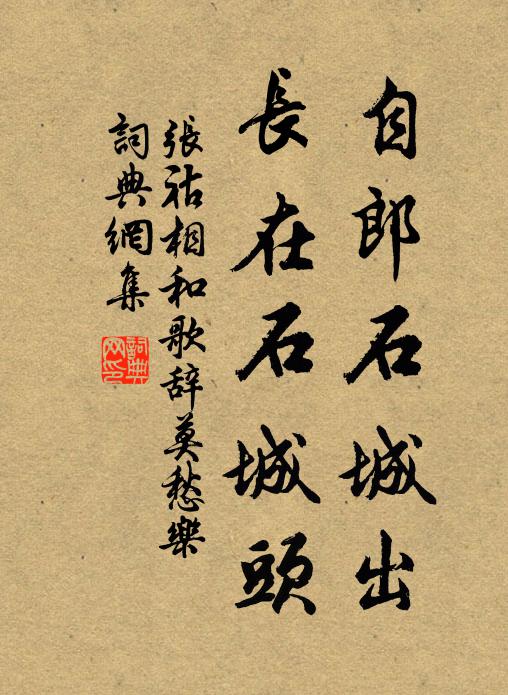 自郎石城出
長在石城頭
張祜相和歌辞莫愁樂
詞典網集
詞典網印